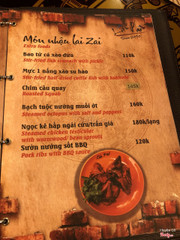 Món nhậu lai Zai
Extra foods
Bao tử cá xào dứa
Stir-fried fish stomach with
Mực 1 nắng xào su hào 150k
Stir-fried half-dried cuttle fish with
Chim câu quay
Roasted Squab
Bạch tuộc nướng muối ớt 160k
Steamed octopus with salt and peppers
Ngọc kê hấp ngải cứu/trần giá 180k/5qng
Steamed chicken testicular
with wormwood/ bean sprouts
Sườn nướng sốt BBQ 120k
Pork ribs with BBQ sauce